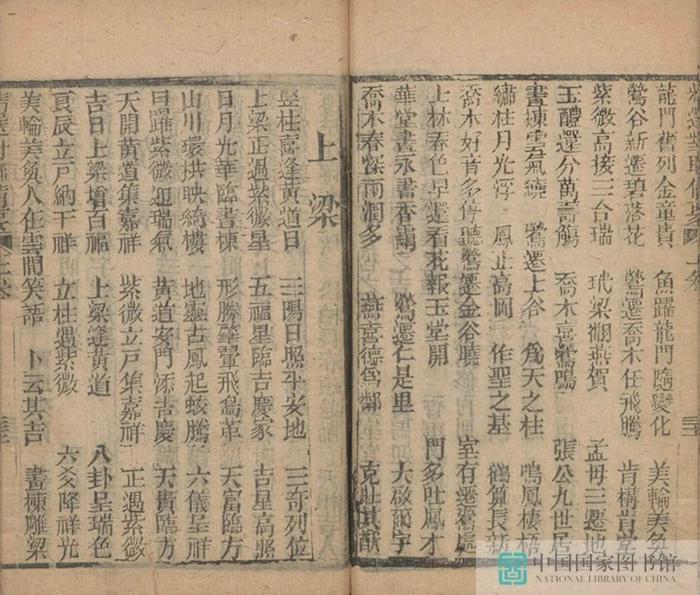 龍門舊列金童貴　魚躍龍門隨變化　美輪美奐
鶯谷新遷碧落花　鶯遷喬木任飛騰　肯構肯堂
紫微高接三台瑞　玳梁翩燕賀　孟母三遷地
玉醴還分萬壽觴　喬木喜鶯鳴　張公九世居
畫棟雲氣繞　鶯遷上谷　為天之柱　鳴鳳棲梧
繡柱月光浮　鳳止高岡　作聖之基　鶴算長新
喬木好音多停聽　鶯遷金谷曉　室有遷鶯處
上林春色早還看　花報玉堂開　門多吐鳳才
華堂晝永書香靄　鶯遷仁是里　大啟爾宇
喬木春深雨潤多　燕喜德為鄰　克壯其猷
上梁
豎柱喜逢黃道日　三陽日照平安地　三奇列位
上梁正遇紫微星　五福星臨吉慶家　吉星高照
日月光華臨畫棟　形勝肇翬飛鳥革　天富臨方
山川環拱映綺樓　地靈占鳳起蛟騰　六儀呈祥
日躍紫微迎瑞氣　黃道安門添吉慶　天貴臨方
天開黃道集嘉祥　紫微立戶集嘉祥　正遇紫微
吉日上梁增百福　上梁逢黃道　八卦呈瑞色
良辰立戶納千祥　立柱遇紫微　六爻降祥光
美輪美奐人在雲間笑語　卜云其吉　畫棟雕梁
上卷
三十
中国国家图书馆
NATIONAL LIBRARY OF CHINA